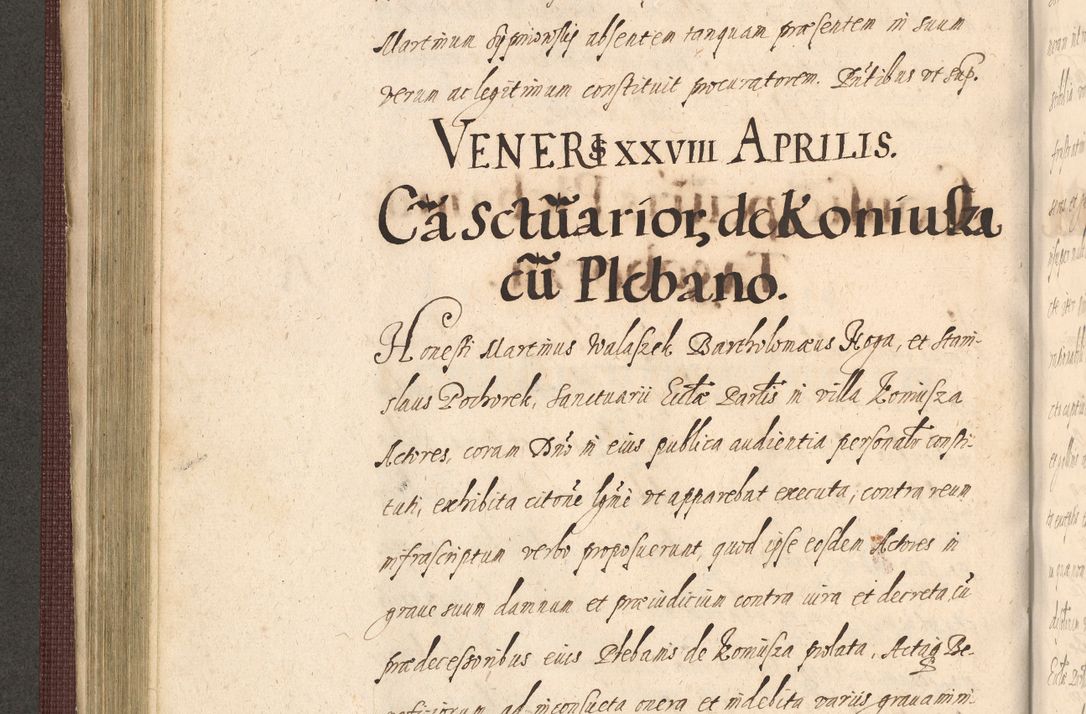 Martinum absentem tanquam præsentem in suum
verum ac legitimum constituit procuratorem. Pñtibus vt sup.
VENERIS XXVIII APRILIS.
Cã Sctũarior, de Koniusza
cũ Plebano.
Honesti Martinus Walaszek Bartholomæus Roga, et Stani-
slaus Pochorek, Sanctuarii Ecclæ Partis in villa Koniusza
Actores, coram Dño in eius publica audientia personalr consti-
tuti, exhibita citone lgme vt apparebat executa, contra reum
infrascriptum verbo proposuerunt, quod ipse eosdem Actores in
graue suum damnum et præiudicium contra iura et decreta, cũ
prædecessoribus eius Plebanis de Koniusza prolata, Be-
neficiorum ad inconsueta onera et indebita variis grauamini-